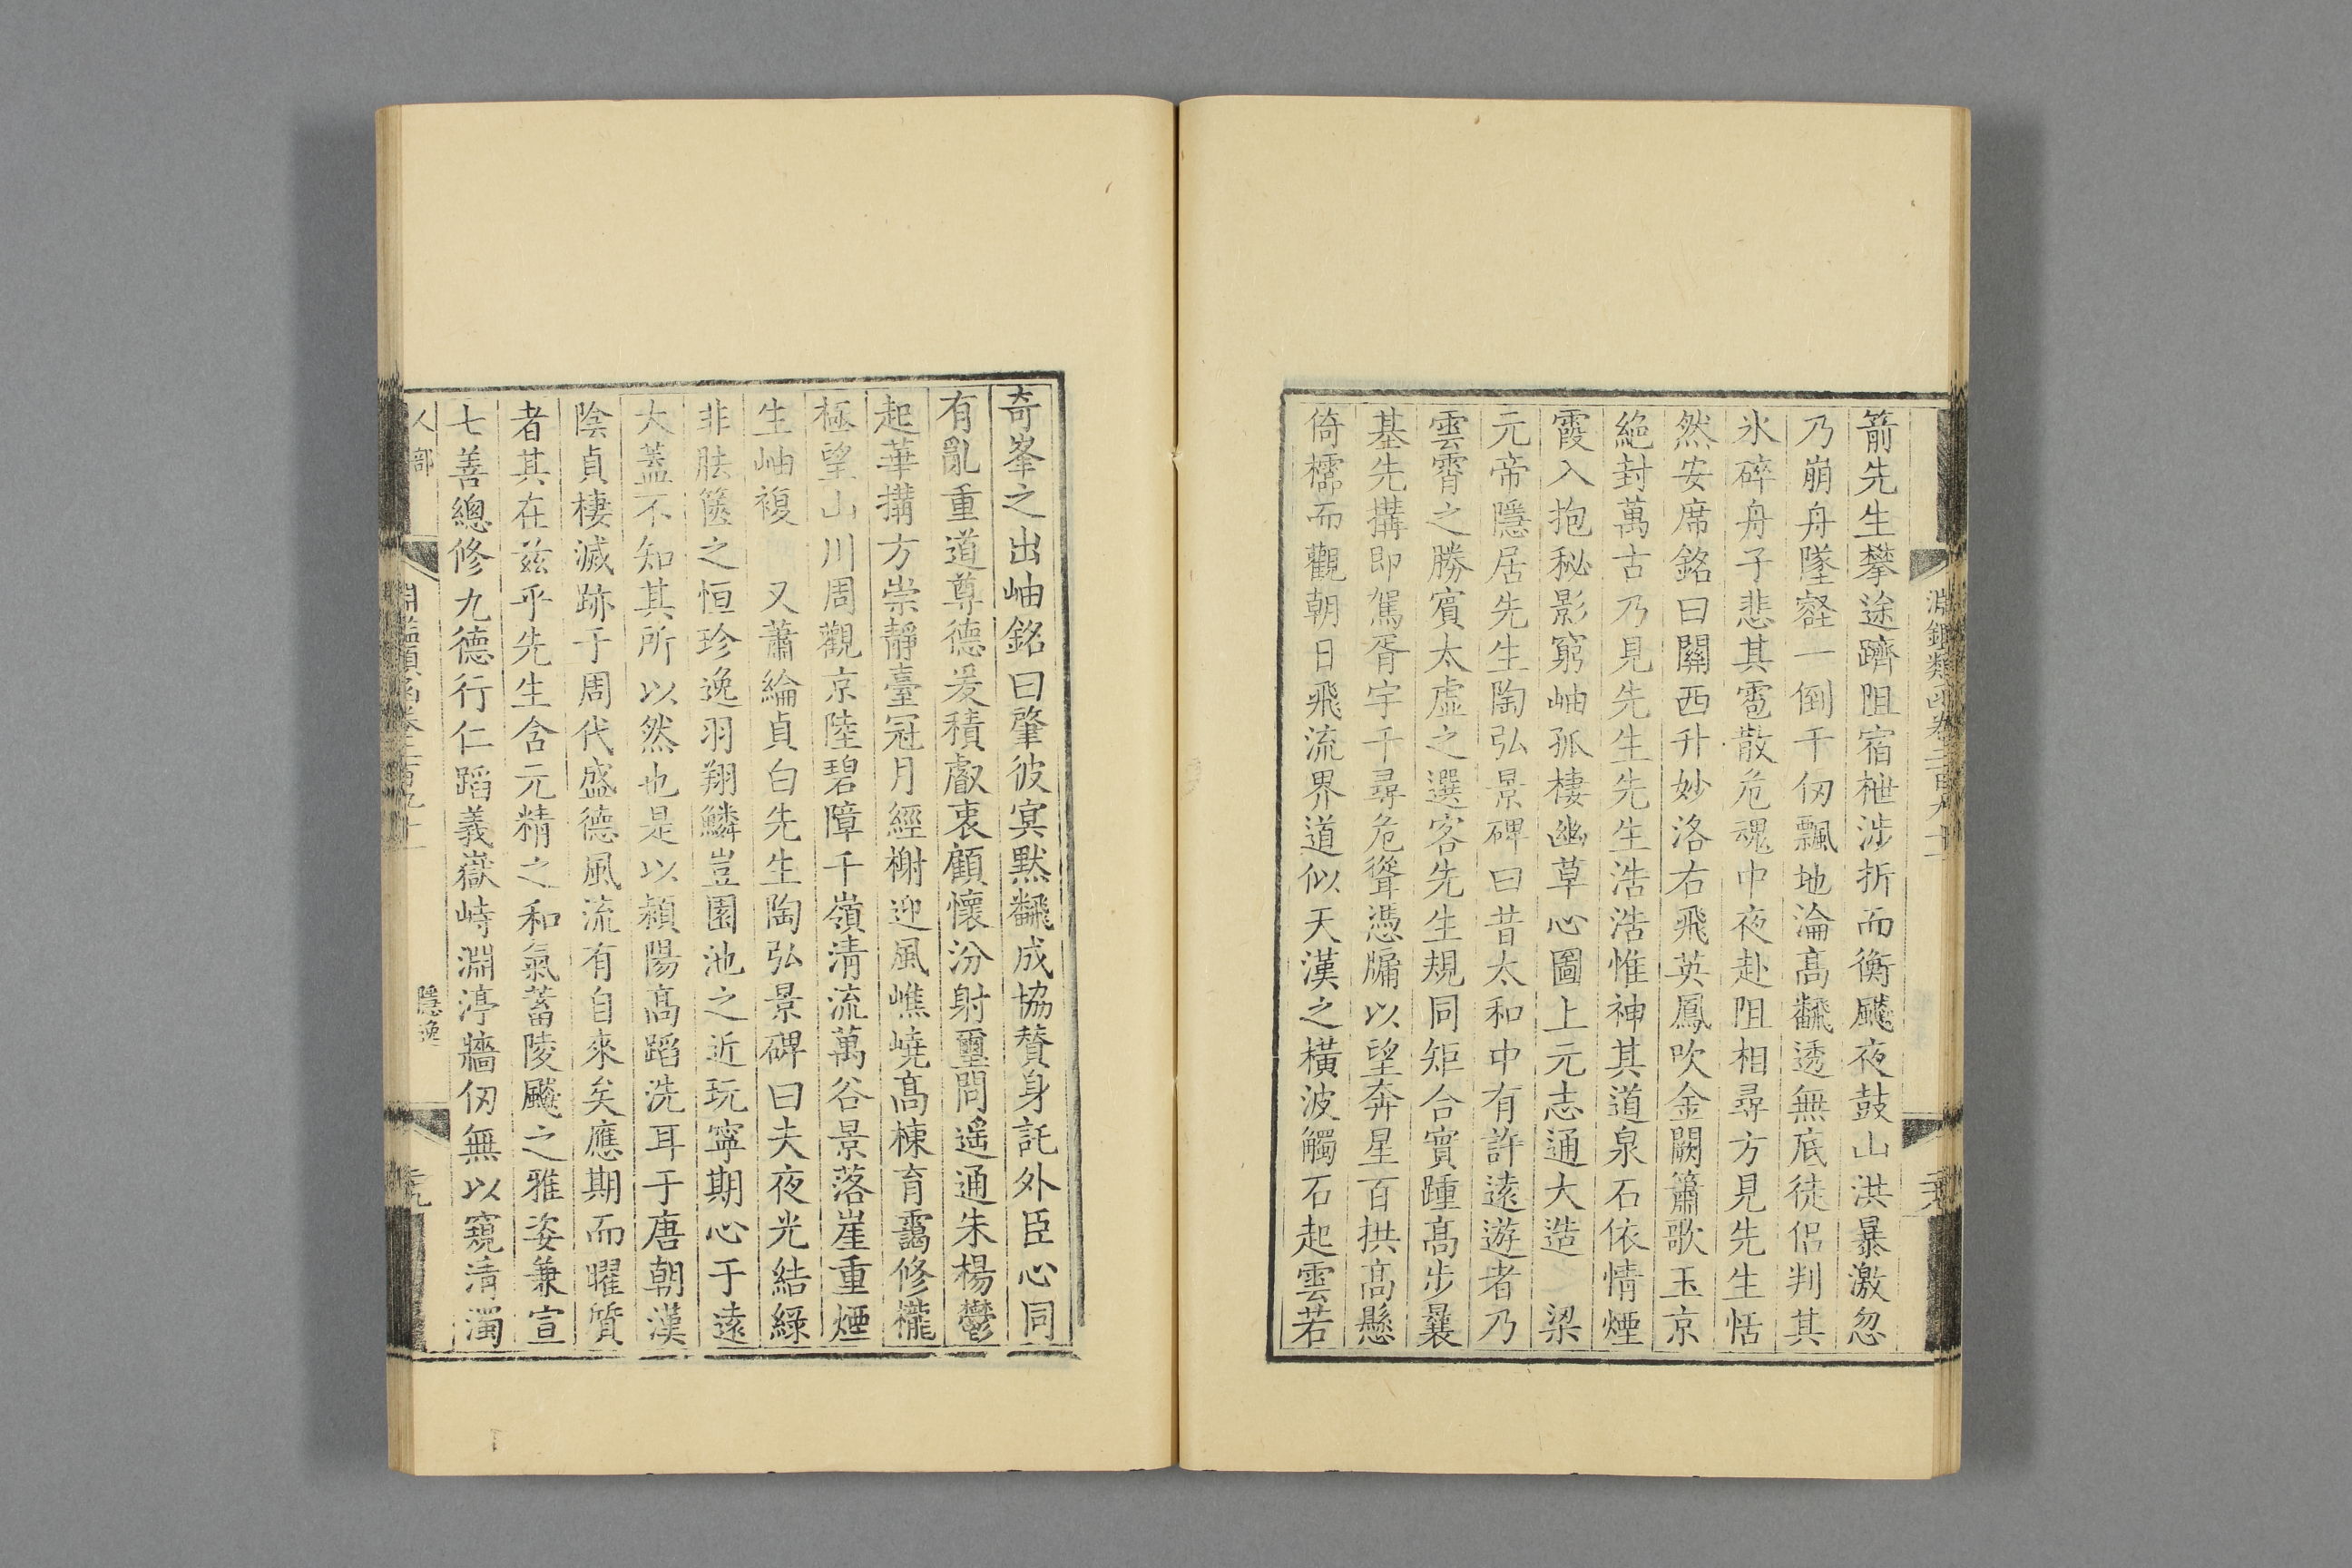 箭先生攀途躋阻宿枻涉折而衡飈夜鼓山洪暴激忽
乃崩舟墜壑一倒千仞飄地淪高飜透無底徒侶判其
氷碎舟子悲其雹散危魂中夜赴阻相尋方見先生恬
然安席銘曰關西升妙洛右飛英鳳吹金闕簫歌玉京
絶封萬古乃見先生先生浩浩惟神其道泉石依情煙
霞入抱秘影窮岫孤棲幽草心圖上元志通大造　梁
元帝隱居先生陶弘景碑曰昔太和中有許逺遊者乃
雲霄之勝賓太虚之選客先生規同矩合實踵高步曩
基先搆即駕胥宇千尋危聳憑牖以望奔星百拱高懸
倚檽而觀朝日飛流界道似天漢之橫波觸石起雲若
奇峯之出岫銘曰肇彼寘黙飜成協賛身託外臣心同
有亂重道尊德爰積叡衷顧懷汾射璽問遥通朱楊鬱
起華搆方崇靜臺冠月經榭迎風嶕嶢高棟育靄修櫳
極望山川周觀京陸碧障千嶺清流萬谷景落崖重煙
生岫複　又蕭綸貞白先生陶弘景碑曰夫夜光結綠
非胠篋之恒珍逸羽翔鱗豈園池之近玩寧期心于逺
大蓋不知其所以然也是以潁陽高蹈洗耳于唐朝漢
陰貞棲滅跡于周代盛德風流有自來矣應期而曜質
者其在兹乎先生含元精之和氣蓄陵飈之雅姿兼宣
七善總修九德行仁蹈義嶽峙淵渟牆仞無以窺清濁
人部
淵鑑類函卷二百九十
隱逸